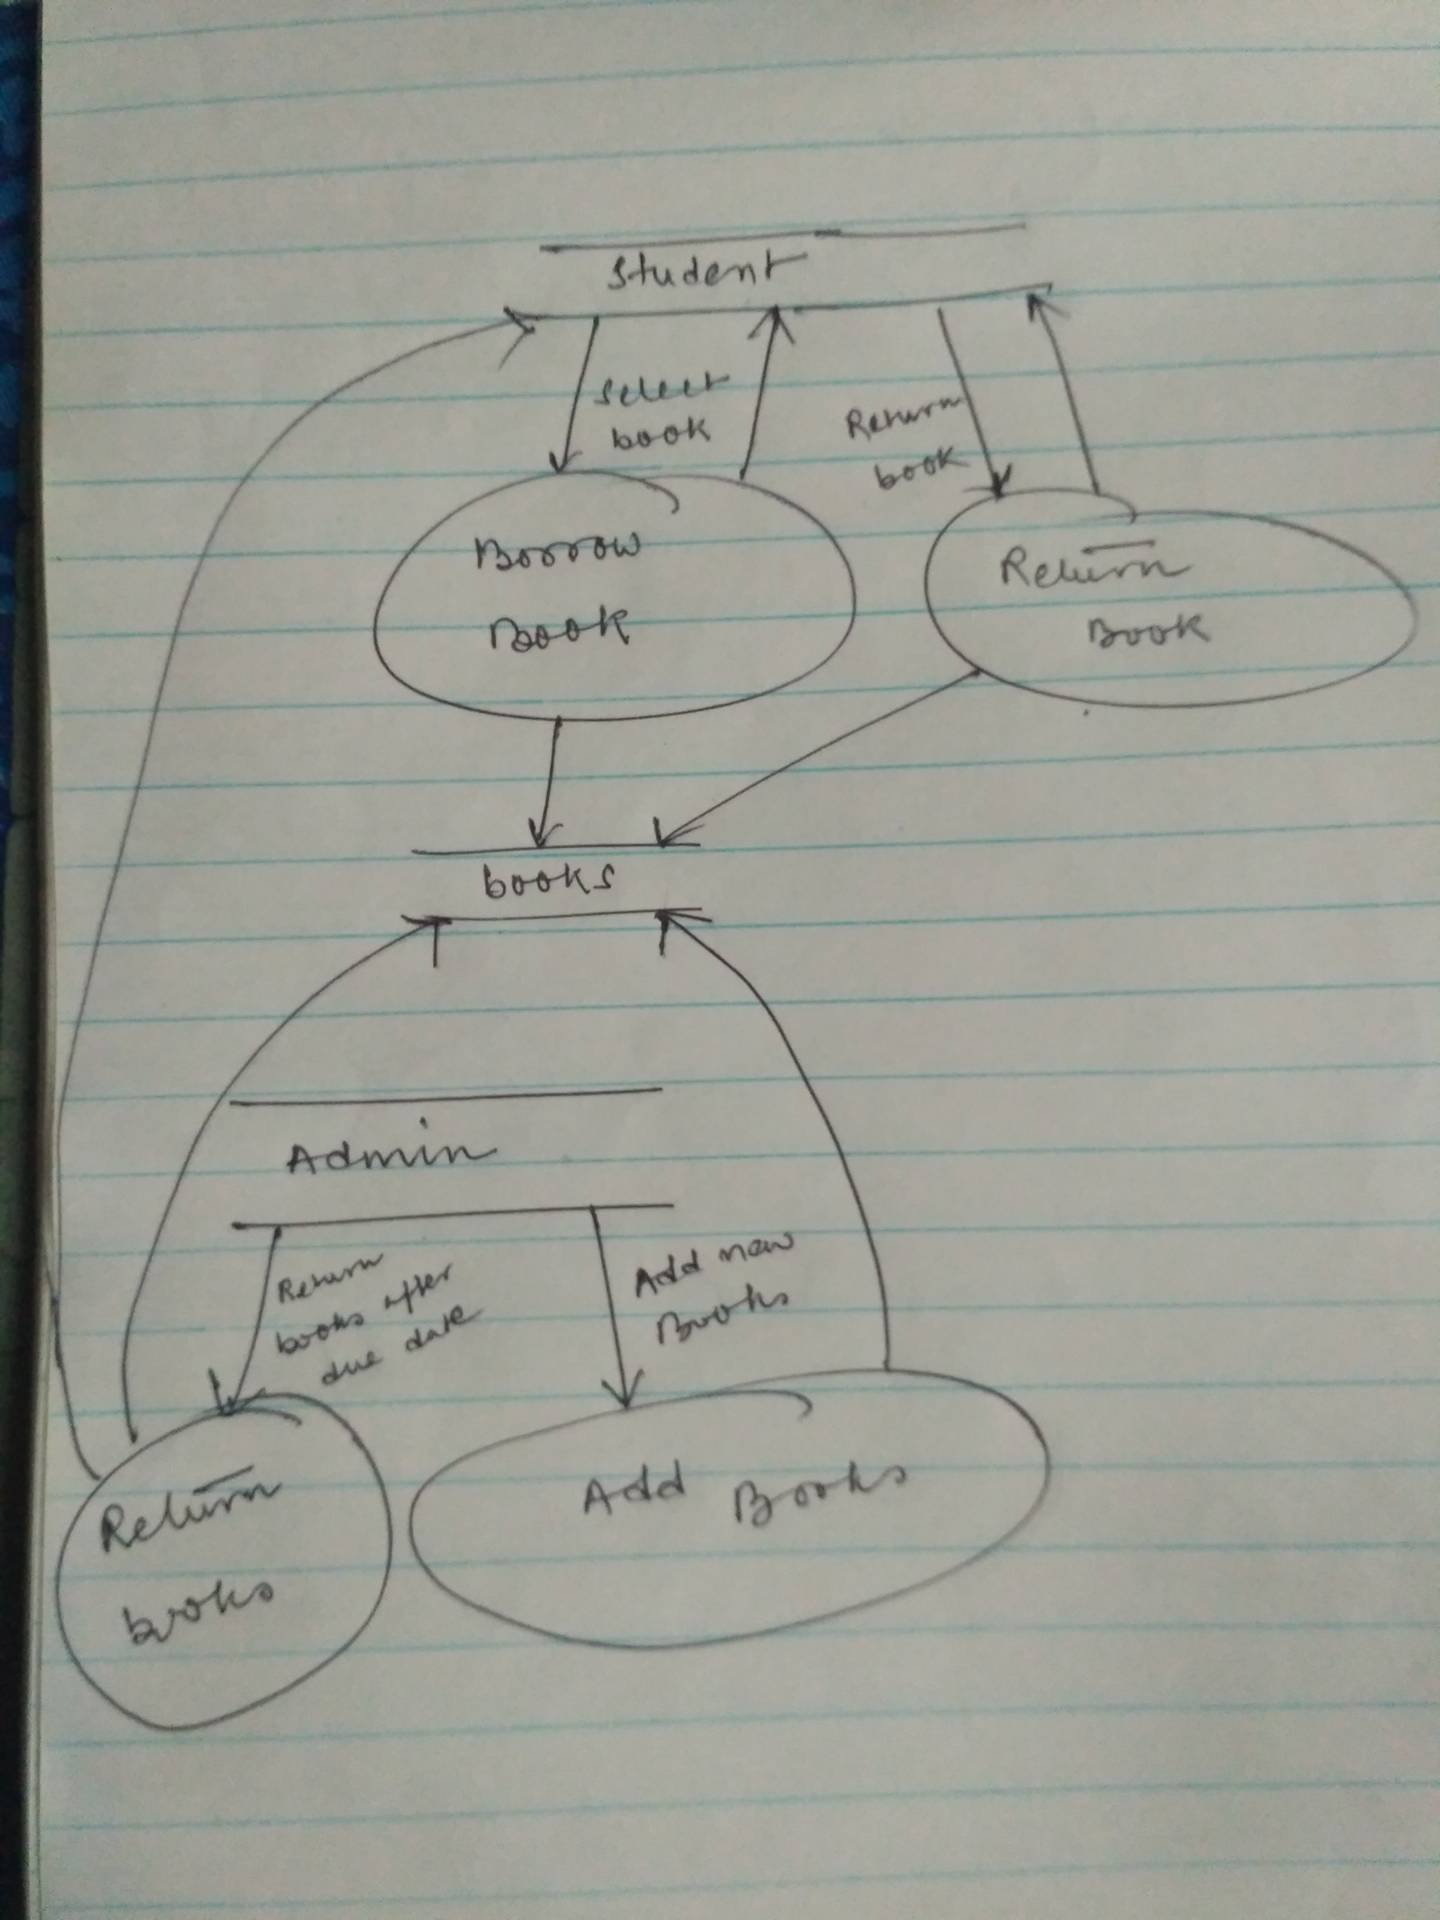 Student
Select
book
Return
book
Borrow
Book
Return
Book
books
Admin
Return
books after
due date
Add new
Books
Return
books
Add Books